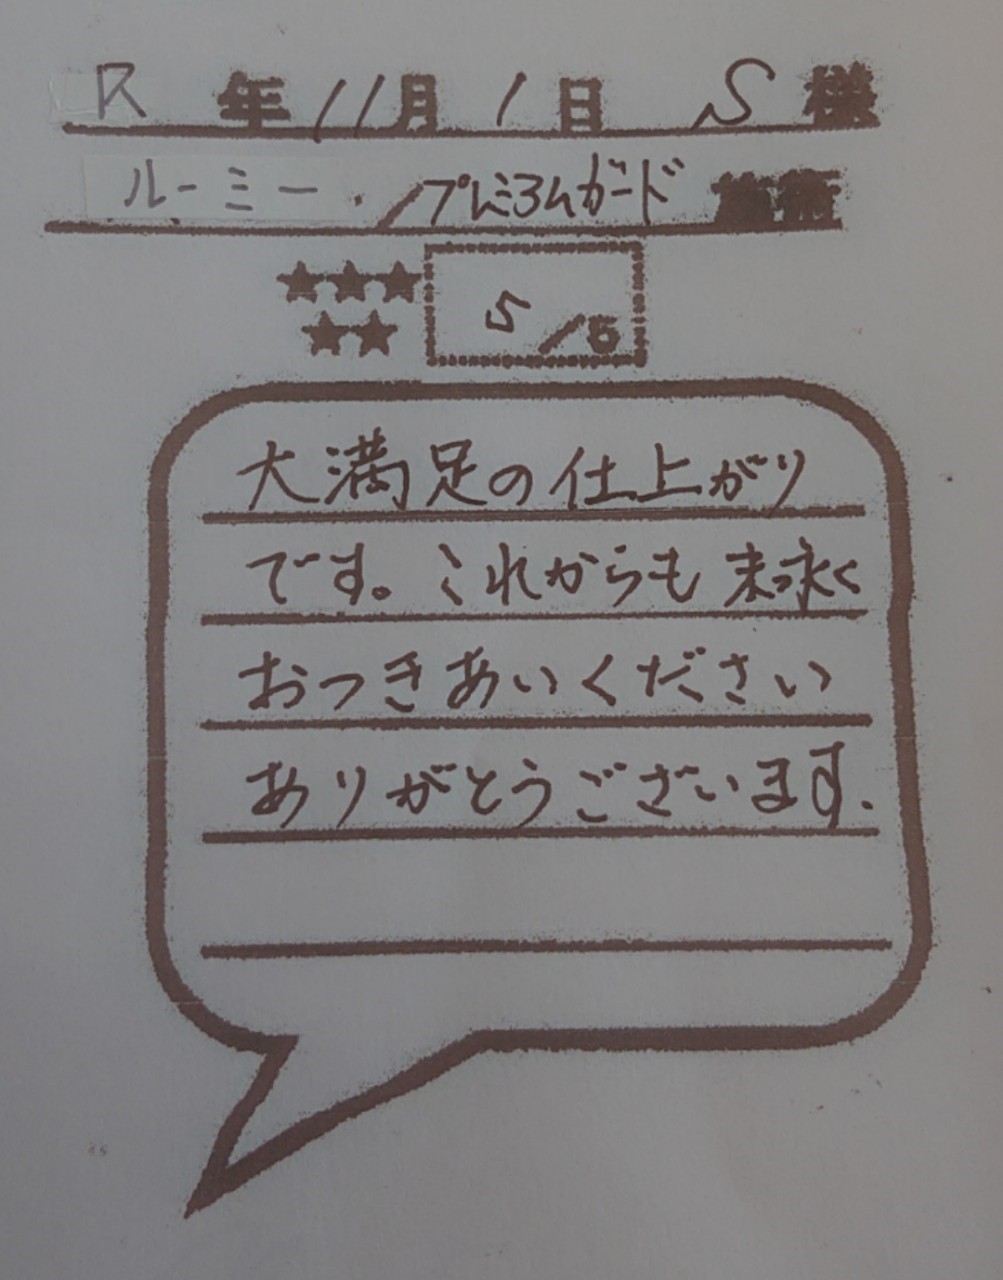 R 年 11月 1日 S 様
ルーミー /プレミアムガード 施術
★★★
★★
5/5
大満足の仕上がり
です。これからも末永く
おつきあいください
ありがとうございます.